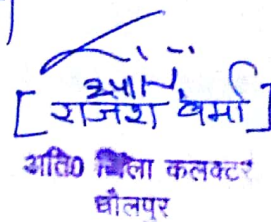 [ राजेश वर्मा ]
अति0 जिला कलक्टर
धौलपुर